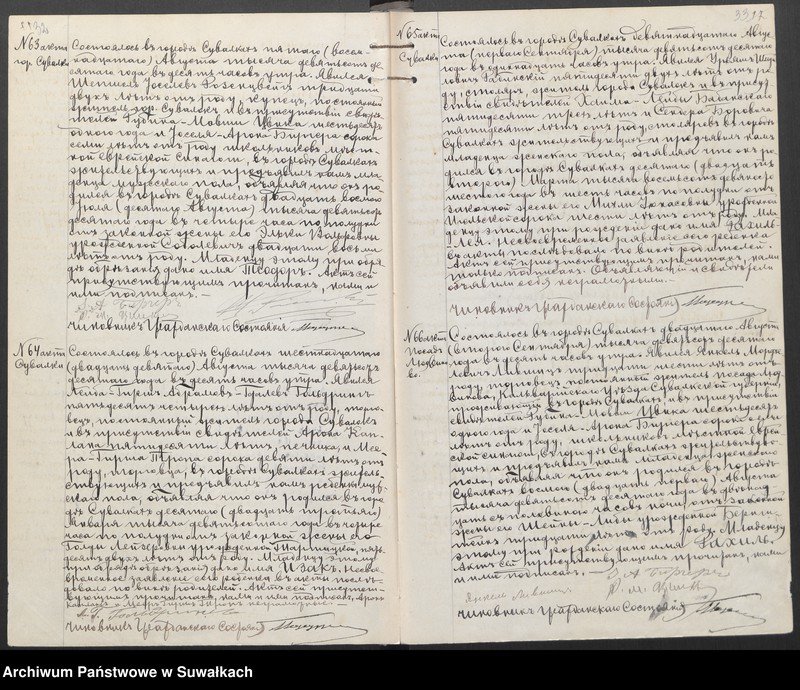 №63 акта
гор. Сувалки
Состоялось въ городѣ Сувалкахъ пятаго (восем-
надцатаго) Августа тысяча девятьсотъ де-
сятаго года въ десять часовъ утра. Явился
Шепшель Іоселевъ Розенцвейгъ тридцати
двухъ лѣтъ отъ роду, купецъ, постоянный
житель гор. Сувалокъ и въ присутствіи свидѣ-
телей Рувина-Мовши Цвика шестьдесятъ
одного года и Іоселя-Арона Бергера сорока
семи лѣтъ отъ роду школьниковъ мѣстн-
ной еврейской синагоги, въ городѣ Сувалкахъ
жительствующихъ и предъявилъ намъ мла-
денца мужескаго пола, объявляя что онъ ро-
дился въ городѣ Сувалкахъ двадцать восьмого
Іюля (десятаго Августа) тысяча девятьсотъ
десятаго года въ четыре часа по полудни
отъ законной жены его Эльки Вольфовны
урожденной Соболевичъ двадцати восьми
лѣтъ отъ роду. Младенцу этому при обря-
дѣ обрѣзанія дано имя Теодоръ. Актъ сей
присутствующимъ прочитанъ, нами и
ими подписанъ.
Чиновникъ Гражданскаго Состоянія
№64 акта
Сувалки
Состоялось въ городѣ Сувалкахъ шестнадцатаго
(двадцать девятаго) Августа тысяча девятьсотъ
десятаго года въ десять часовъ утра. Явился
Лейба-Гиршъ Абрамовъ-
пятьдесятъ четырехъ лѣтъ отъ роду, торго-
вецъ, постоянный житель города Сувалокъ
и въ присутствіи свидѣтелей Арона Кап-
лана пятидесяти лѣтъ, печника, и Мее-
ра-Гирша Тропа сорока девяти лѣтъ отъ
роду, торговца, въ городѣ Сувалкахъ житель-
ствующихъ и предъявилъ намъ ребенка муж-
скаго пола, объявляя что онъ родился въ горо-
дѣ Сувалкахъ десятаго (двадцать третьяго)
Января тысяча девятисотаго года въ четыре
часа по полудни отъ законной жены его
Голды Лейзеровны урожденной
десяти двухъ лѣтъ отъ роду. Младенцу этому
при обрядѣ обрѣзанія дано имя Изакъ. Несво-
временное заявленіе сего ребенка въ акты послѣ-
довало по винѣ родителей. Актъ сей присутст-
вующимъ прочитанъ, нами и ими подписанъ, Аронъ
Капланъ и Мееръ-Гиршъ Тропъ неграмотные.
Чиновникъ Гражданскаго Состоянія
3317
№65 акта
Сувалки
Состоялось въ городѣ Сувалкахъ девятнадцатаго Авгус-
та (перваго Сентября) тысяча девятьсотъ десятаго
года въ одиннадцать часовъ утра. Явился
пятидесяти двухъ лѣтъ отъ ро-
ду, столяръ, житель города Сувалокъ и въ присут-
ствіи свидѣтелей Хаима-Лейбы
пятидесяти трехъ лѣтъ и
пятидесяти лѣтъ отъ роду, столяровъ въ городѣ
Сувалкахъ жительствующихъ и предъявилъ намъ
младенца женскаго пола, объявляя что онъ ро-
дился въ городѣ Сувалкахъ десятаго (двадцать
второго) Марта тысяча восемьсотъ девяносто
шестого года въ шесть часовъ по полудни отъ
законной жены его Михли урожденной
сорока шести лѣтъ отъ роду. Мла-
денцу этому при рожденіи дано имя Рахиль-
Лея. Несвоевременное заявленіе сего ребенка
въ акты послѣдовало по винѣ родителей.
Актъ сей присутствующимъ прочитанъ, нами
только подписанъ. Объявляющій и свидѣтели
объявили себя неграмотными.
Чиновникъ Гражданскаго Состоянія
№66 акта
Посадъ
Состоялось въ городѣ Сувалкахъ двадцатаго Августа
(второго Сентября) тысяча девятьсотъ десятаго
года въ десять часовъ утра. Явился Янкель Мордхе-
левичъ Лившицъ тридцати шести лѣтъ отъ
роду торговецъ постоянный житель посада
Кальварійскаго уѣзда Сувалкской губерніи,
проживающій въ городѣ Сувалкахъ, и въ присутствіи
свидѣтелей Рувина-Мовши Цвика шестьдесятъ
одного года и Іоселя-Арона Бергера сорока семи
лѣтъ отъ роду, школьниковъ мѣстной еврей-
ской синагоги, въ городѣ Сувалкахъ жительствую-
щихъ и предъявилъ намъ младенца женскаго
пола, объявляя что онъ родился въ городѣ
Сувалкахъ восьмого (двадцать перваго) Августа
тысяча девятьсотъ десятаго года въ двѣнад-
цать съ половиною часовъ ночи отъ законной
жены его Шейны-Ливы урожденной
тридцати лѣтъ отъ роду. Младенцу
этому при рожденіи дано имя Рахиль.
Актъ сей присутствующимъ прочитанъ, нами
и ими подписанъ.
Янкель Лившицъ
Чиновникъ Гражданскаго Состоянія
Archiwum Państwowe w Suwałkach